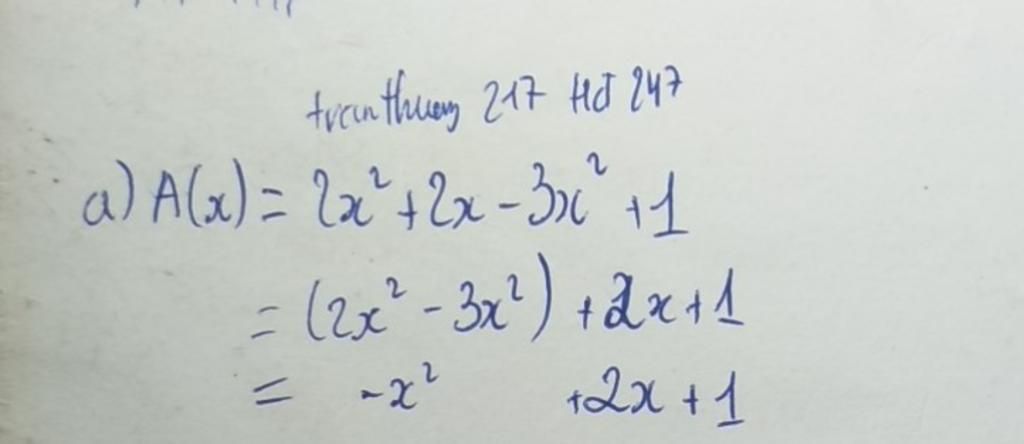 tranthuong 217 HĐ 247
a) A(x) = 2x² + 2x - 3x² + 1
= (2x² - 3x²) + 2x + 1
= -x² + 2x + 1